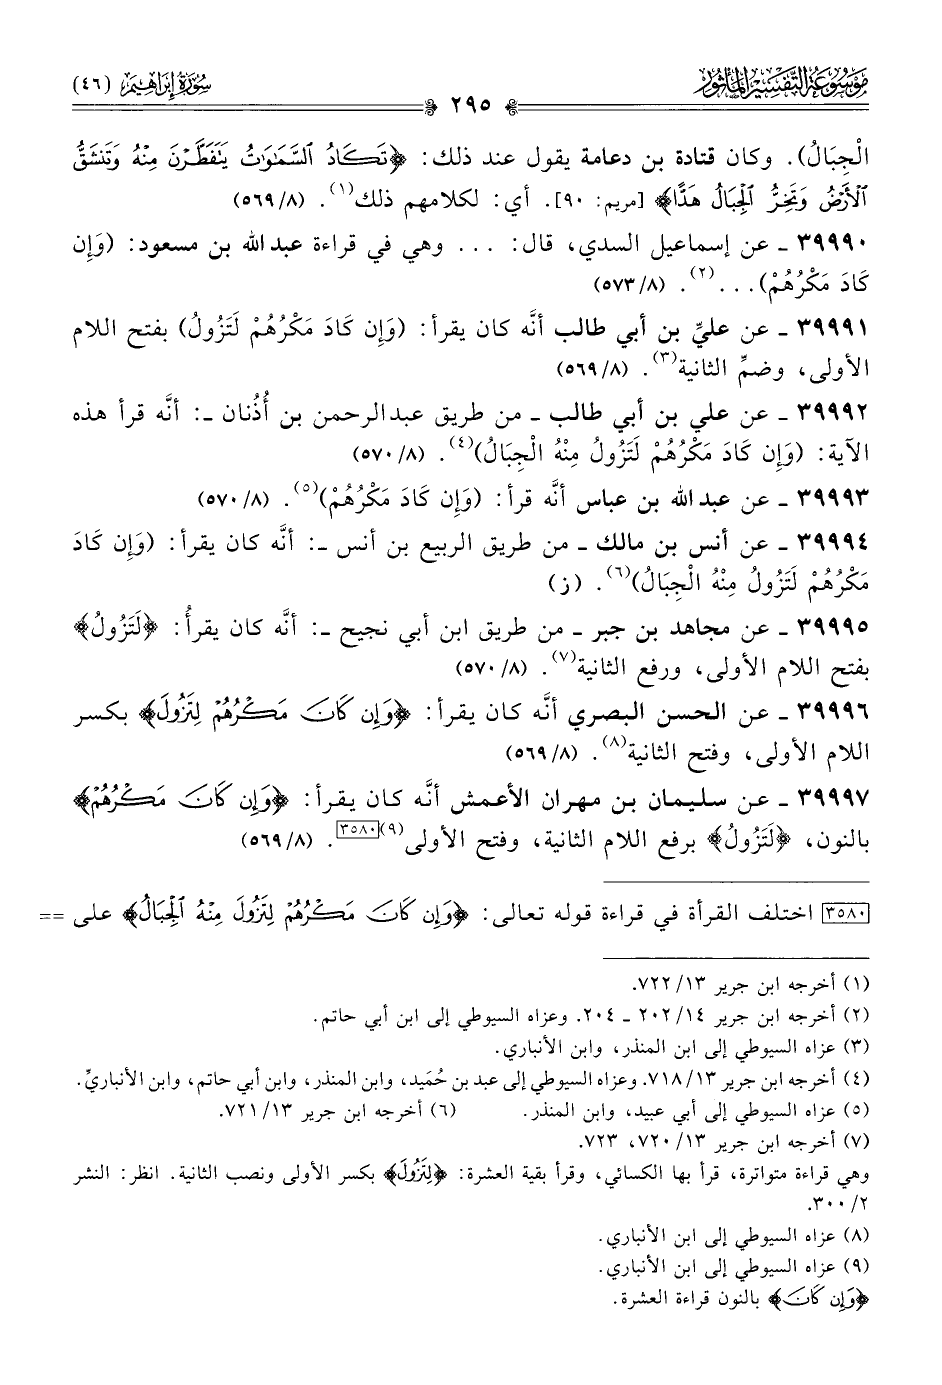 موسوعة التفسير المأثور
سورة إبراهيم (٤٦)
٢٩٥
الْجِبَالُ). وكان قتادة بن دعامة يقول عند ذلك: ﴿تَكَادُ السَّمَاوَاتُ يَتَفَطَّرْنَ مِنْهُ وَتَنشَقُّ
الْأَرْضُ وَتَخِرُّ الْجِبَالُ هَدًّا﴾ [مريم: ٩٠]. أي: لكلامهم ذلك(١). (٥٦٩/٨)
٣٩٩٩٠ ـ عن إسماعيل السدي، قال: ... وهي في قراءة عبد الله بن مسعود: (وَإِن
كَادَ مَكْرُهُمْ)...(٢). (٥٧٣/٨)
٣٩٩٩١ ـ عن عليِّ بن أبي طالب أنَّه كان يقرأ: (وَإِن كَادَ مَكْرُهُمْ لَتَزُولُ) بفتح اللام
الأولى، وضمِّ الثانية(٣). (٥٦٩/٨)
٣٩٩٩٢ ـ عن علي بن أبي طالب ـ من طريق عبد الرحمن بن أُذُنان ـ: أنَّه قرأ هذه
الآية: (وَإِن كَادَ مَكْرُهُمْ لَتَزُولُ مِنْهُ الْجِبَالُ)(٤). (٥٧٠/٨)
٣٩٩٩٣ ـ عن عبد الله بن عباس أنَّه قرأ: (وَإِن كَادَ مَكْرُهُمْ)(٥). (٥٧٠/٨)
٣٩٩٩٤ ـ عن أنس بن مالك ـ من طريق الربيع بن أنس ـ: أنَّه كان يقرأ: (وَإِن كَادَ
مَكْرُهُمْ لَتَزُولُ مِنْهُ الْجِبَالُ)(٦). (ز)
٣٩٩٩٥ ـ عن مجاهد بن جبر ـ من طريق ابن أبي نجيح ـ: أنَّه كان يقرأُ: ﴿لَتَزُولُ﴾
بفتح اللام الأولى، ورفع الثانية(٧). (٥٧٠/٨)
٣٩٩٩٦ ـ عن الحسن البصري أنَّه كان يقرأ: ﴿وَإِن كَانَ مَكْرُهُمْ لِتَزُولَ﴾ بكسر
اللام الأولى، وفتح الثانية(٨). (٥٦٩/٨)
٣٩٩٩٧ ـ عن سليمان بن مهران الأعمش أنَّه كان يقرأ: ﴿وَإِن كَانَ مَكْرُهُمْ﴾
بالنون، ﴿لَتَزُولُ﴾ برفع اللام الثانية، وفتح الأولى(٩)[٣٥٨٠]. (٥٦٩/٨)
[٣٥٨٠] اختلف القرأة في قراءة قوله تعالى: ﴿وَإِن كَانَ مَكْرُهُمْ لِتَزُولَ مِنْهُ الْجِبَالُ﴾ على ==
(١) أخرجه ابن جرير ٧٢٢/١٣.
(٢) أخرجه ابن جرير ٢٠٢/١٤ ـ ٢٠٤. وعزاه السيوطي إلى ابن أبي حاتم.
(٣) عزاه السيوطي إلى ابن المنذر، وابن الأنباري.
(٤) أخرجه ابن جرير ٧١٨/١٣. وعزاه السيوطي إلى عبد بن حُمَيد، وابن المنذر، وابن أبي حاتم، وابن الأنباريِّ.
(٥) عزاه السيوطي إلى أبي عبيد، وابن المنذر. (٦) أخرجه ابن جرير ٧٢١/١٣.
(٧) أخرجه ابن جرير ٧٢٠/١٣، ٧٢٣.
وهي قراءة متواترة، قرأ بها الكسائي، وقرأ بقية العشرة: ﴿لِتَزُولَ﴾ بكسر الأولى ونصب الثانية. انظر: النشر
٣٠٠/٢.
(٨) عزاه السيوطي إلى ابن الأنباري.
(٩) عزاه السيوطي إلى ابن الأنباري.
﴿وَإِن كَانَ﴾ بالنون قراءة العشرة.